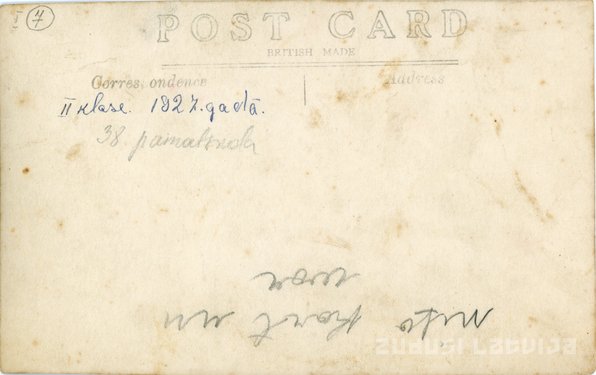 I 7
POST CARD
BRITISH MADE
Correspondence
Address
II klase. 1927. gadā.
38. pamatskola
ZUDUSI LATVIJA